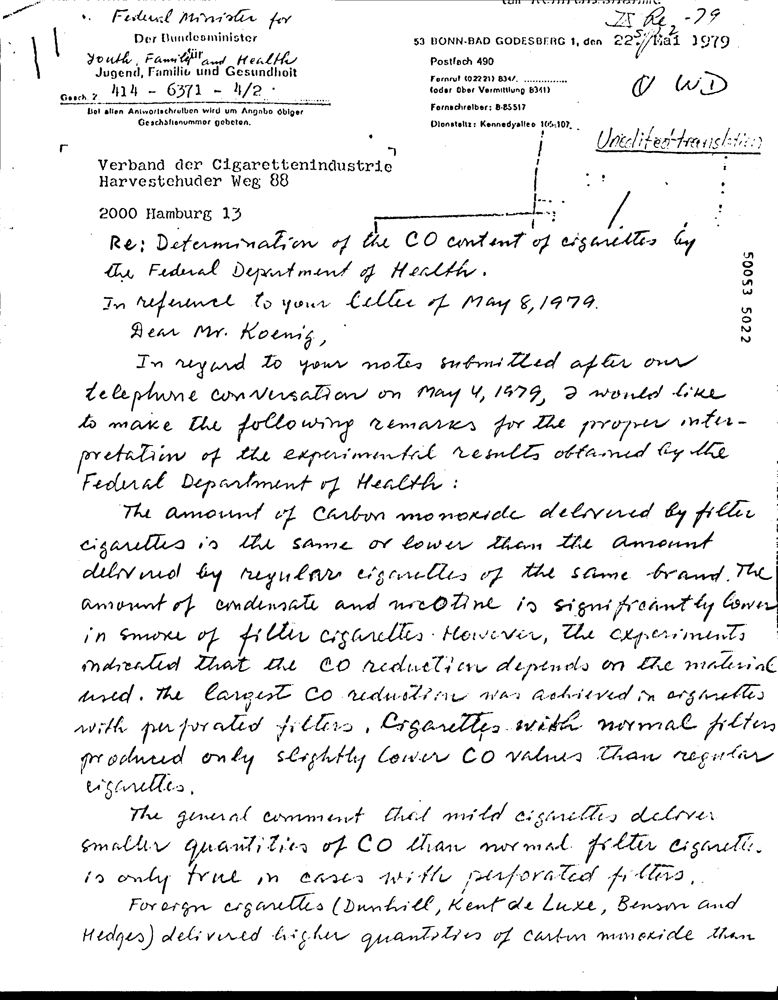 Federal Minister for
Der Bundesminister
für
Youth, Family and Health
Jugend, Familie und Gesundheit
Gesch. Z. 414 - 6371 - 4/2
Bei allen Antwortschreiben wird um Angabe obiger
Geschäftsnummer gebeten.
IX Re 2 -79
53 BONN-BAD GODESBERG 1, den 22. Mai 1979
Postfach 490
Fernruf (02221) 834/
(oder über Vermittlung 8341)
Fernschreiber: 8-85517
Dienstsitz: Kennedyallee 105-107
WD
Unedited translation
Verband der Cigarettenindustrie
Harvestehuder Weg 88
2000 Hamburg 13
Re: Determination of the CO content of cigarettes by
the Federal Department of Health.
In reference to your letter of May 8, 1979.
Dear Mr. Koenig,
In regard to your notes submitted after our
telephone conversation on May 4, 1979, I would like
to make the following remarks for the proper inter-
pretation of the experimental results obtained by the
Federal Department of Health:
The amount of Carbon monoxide delivered by filter
cigarettes is the same or lower than the amount
delivered by regular cigarettes of the same brand. The
amount of condensate and nicotine is significantly lower
in smoke of filter cigarettes. However, the experiments
indicated that the CO reduction depends on the material
used. The largest CO reduction was achieved in cigarettes
with perforated filters. Cigarettes with normal filters
produced only slightly lower CO values than regular
cigarettes.
The general comment that mild cigarettes deliver
smaller quantities of CO than normal filter cigarette.
is only true in cases with perforated filters.
Foreign cigarettes (Dunhill, Kent de Luxe, Benson and
Hedges) delivered higher quantities of carbon monoxide than
50053 5022